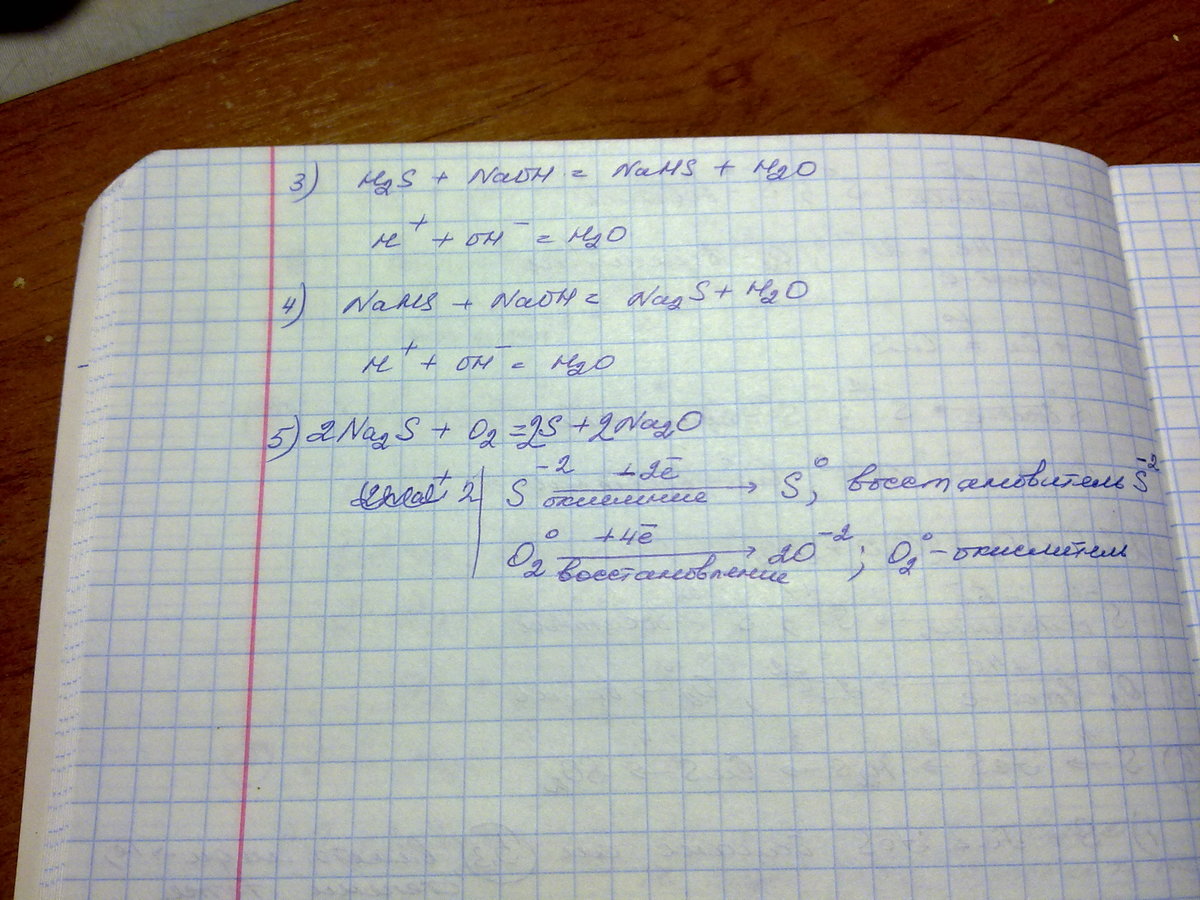 3) H₂S + NaOH = NaHS + H₂O
H⁺ + OH⁻ = H₂O
4) NaHS + NaOH = Na₂S + H₂O
H⁺ + OH⁻ = H₂O
5) 2Na₂S + O₂ = 2S + 2Na₂O
2 | S⁻² +2ē окисление → S⁰; восстановитель S⁻²
O₂⁰ +4ē восстановление → 2O⁻²; O₂⁰ – окислитель